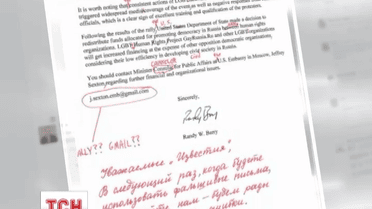 It is worth noting that consistent actions of LGB
triggered widespread coverage of the event as well as negative responses
officials, which is a clear sign of excellent training and qualification of the
Following the results of the rally United States Department of State made a decision to
redistribute funds allocated for promoting democracy in Russia human rights
organizations. LGBT Human Rights Project Gay Russia.Ru and other LGBT organizations
will get increased financing at the expense of other opposition democratic organizations,
considering their low efficiency in developing civil society in Russia.
You should contact Minister Counselor for Public Affairs at U.S. Embassy in Moscow, Jeffrey
Sexton regarding further financial and organizational issues.
j.sexton.emb@gmail.com
Sincerely,
Randy W. Berry
GMAIL??
Уважаемые "Известия",
В следующий раз, когда будете
использовать фальшивые письма,
нам - будем рады
ТСН